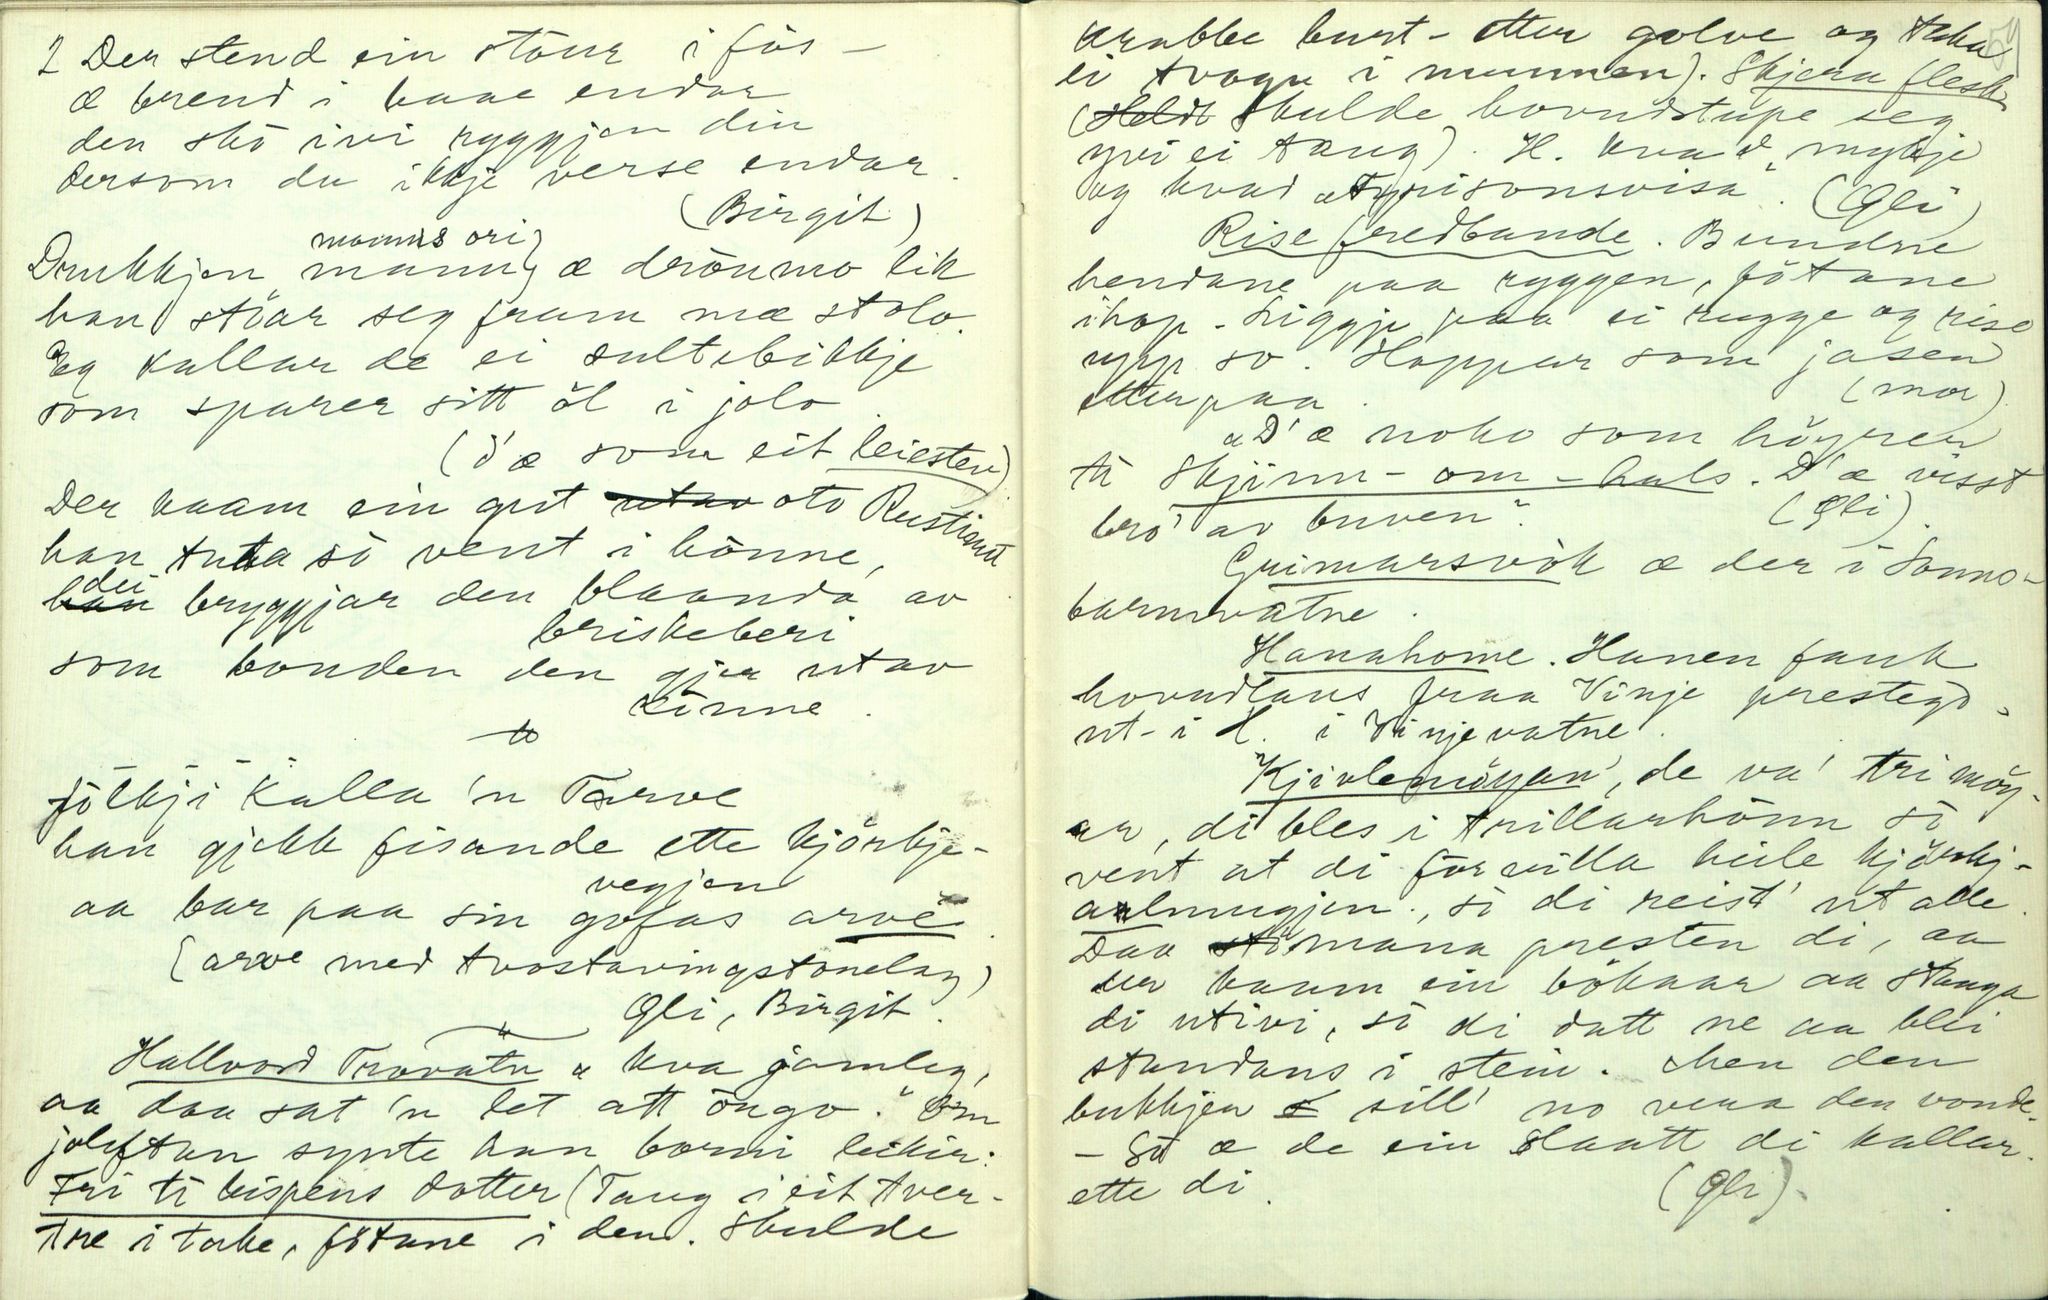 2 Der stend ein stöur i fös –
æ brend i baae endar
den skò ivi ryggjen din
dersom du ikkje verse endar.
(Birgit)
manns ori
Drukkjen mann, æ dröumo lik
han stöar seg fram mæ stolo.
Eg kallar de ei sultebikkje
som sparer sitt öl i jolo.
(d'æ som eit leiesten)
Der kaam ein gut utav oto Rusti
han tuta sò vent i hònne,
dei
han bryggjar den blaanda av
briskeberi
som bonden den gjer utav
kònne.
fölkji kalla 'n Tarve
han gjekk fisande ette kjörkje-
vegjen
aa bar paa sin gofas arve.
(arve med tvostavingstonelag)
Gli, Birgit.
Hallvord Trovatn "kva gamleg,
aa daa sat 'n let att öugo." Om
joleftan synte han borni leikir:
Fri ti bispens dotter (Taug i eit tver-
tre i take, fötane i den. Skulde
54
krabbe burt-etter golve og taka
ei tvoga i munnen). Skjera flesk
(Heldt Skulde hovudstupe seg
yvi ei taug). H. kvad mykje
og kvad "Tyrisonsvisa". (Gli)
Rise fredbande. Bundne
hendane paa ryggen, fötane
ihop. Liggje paa ei rugge og rise
upp so. Hoppar som jasen
etterpaa. (mor)
"D'æ noko som höyrer
tà Skjinn-om-hals. D'æ visst
bro' av buven". (Gli).
Grimarsvòk æ der i Sonno-
barmvatne.
Hanahome. Hanen fauk
hovudlaus fraa Vinje prestegd.
ut-i H. i Vinjevatne.
Kjivlemöyan', de va' tri möy-
ar, di bles i trillarhònn sò
vent at di forvilla heile kjörkj-
aalmugjen, sò di reist' ut alle.
Daa mana presten di, aa
der kaam ein bökaar aa stanga
di utivi, sò di datt ne aa blei
standans i stein. Men den
bukkjen sill' no vera den vonde.
– Sò æ de ein slaatt di kallar
ette di. (Gli).